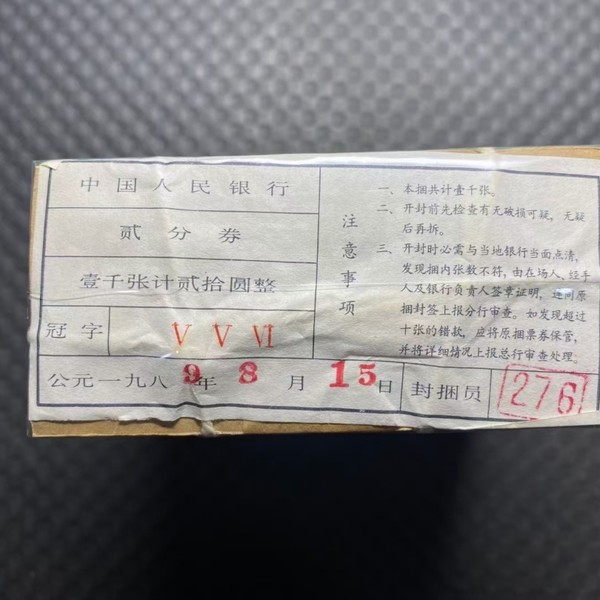 中国人民银行
贰分券
壹千张计贰拾圆整
冠字 V V VI
公元一九八9年8月15日 封捆员 276
注意事项
一、本捆共计壹千张。
二、开封前先检查有无破损可疑，无疑
后再拆。
三、开封时必需与当地银行当面点清，
发现捆内张数不符，由在场人、经手
人及银行负责人签章证明，连同原
捆封签上报分行审查。如发现超过
十张的错款，应将原捆票券保管，
并将详细情况上报总行审查处理。